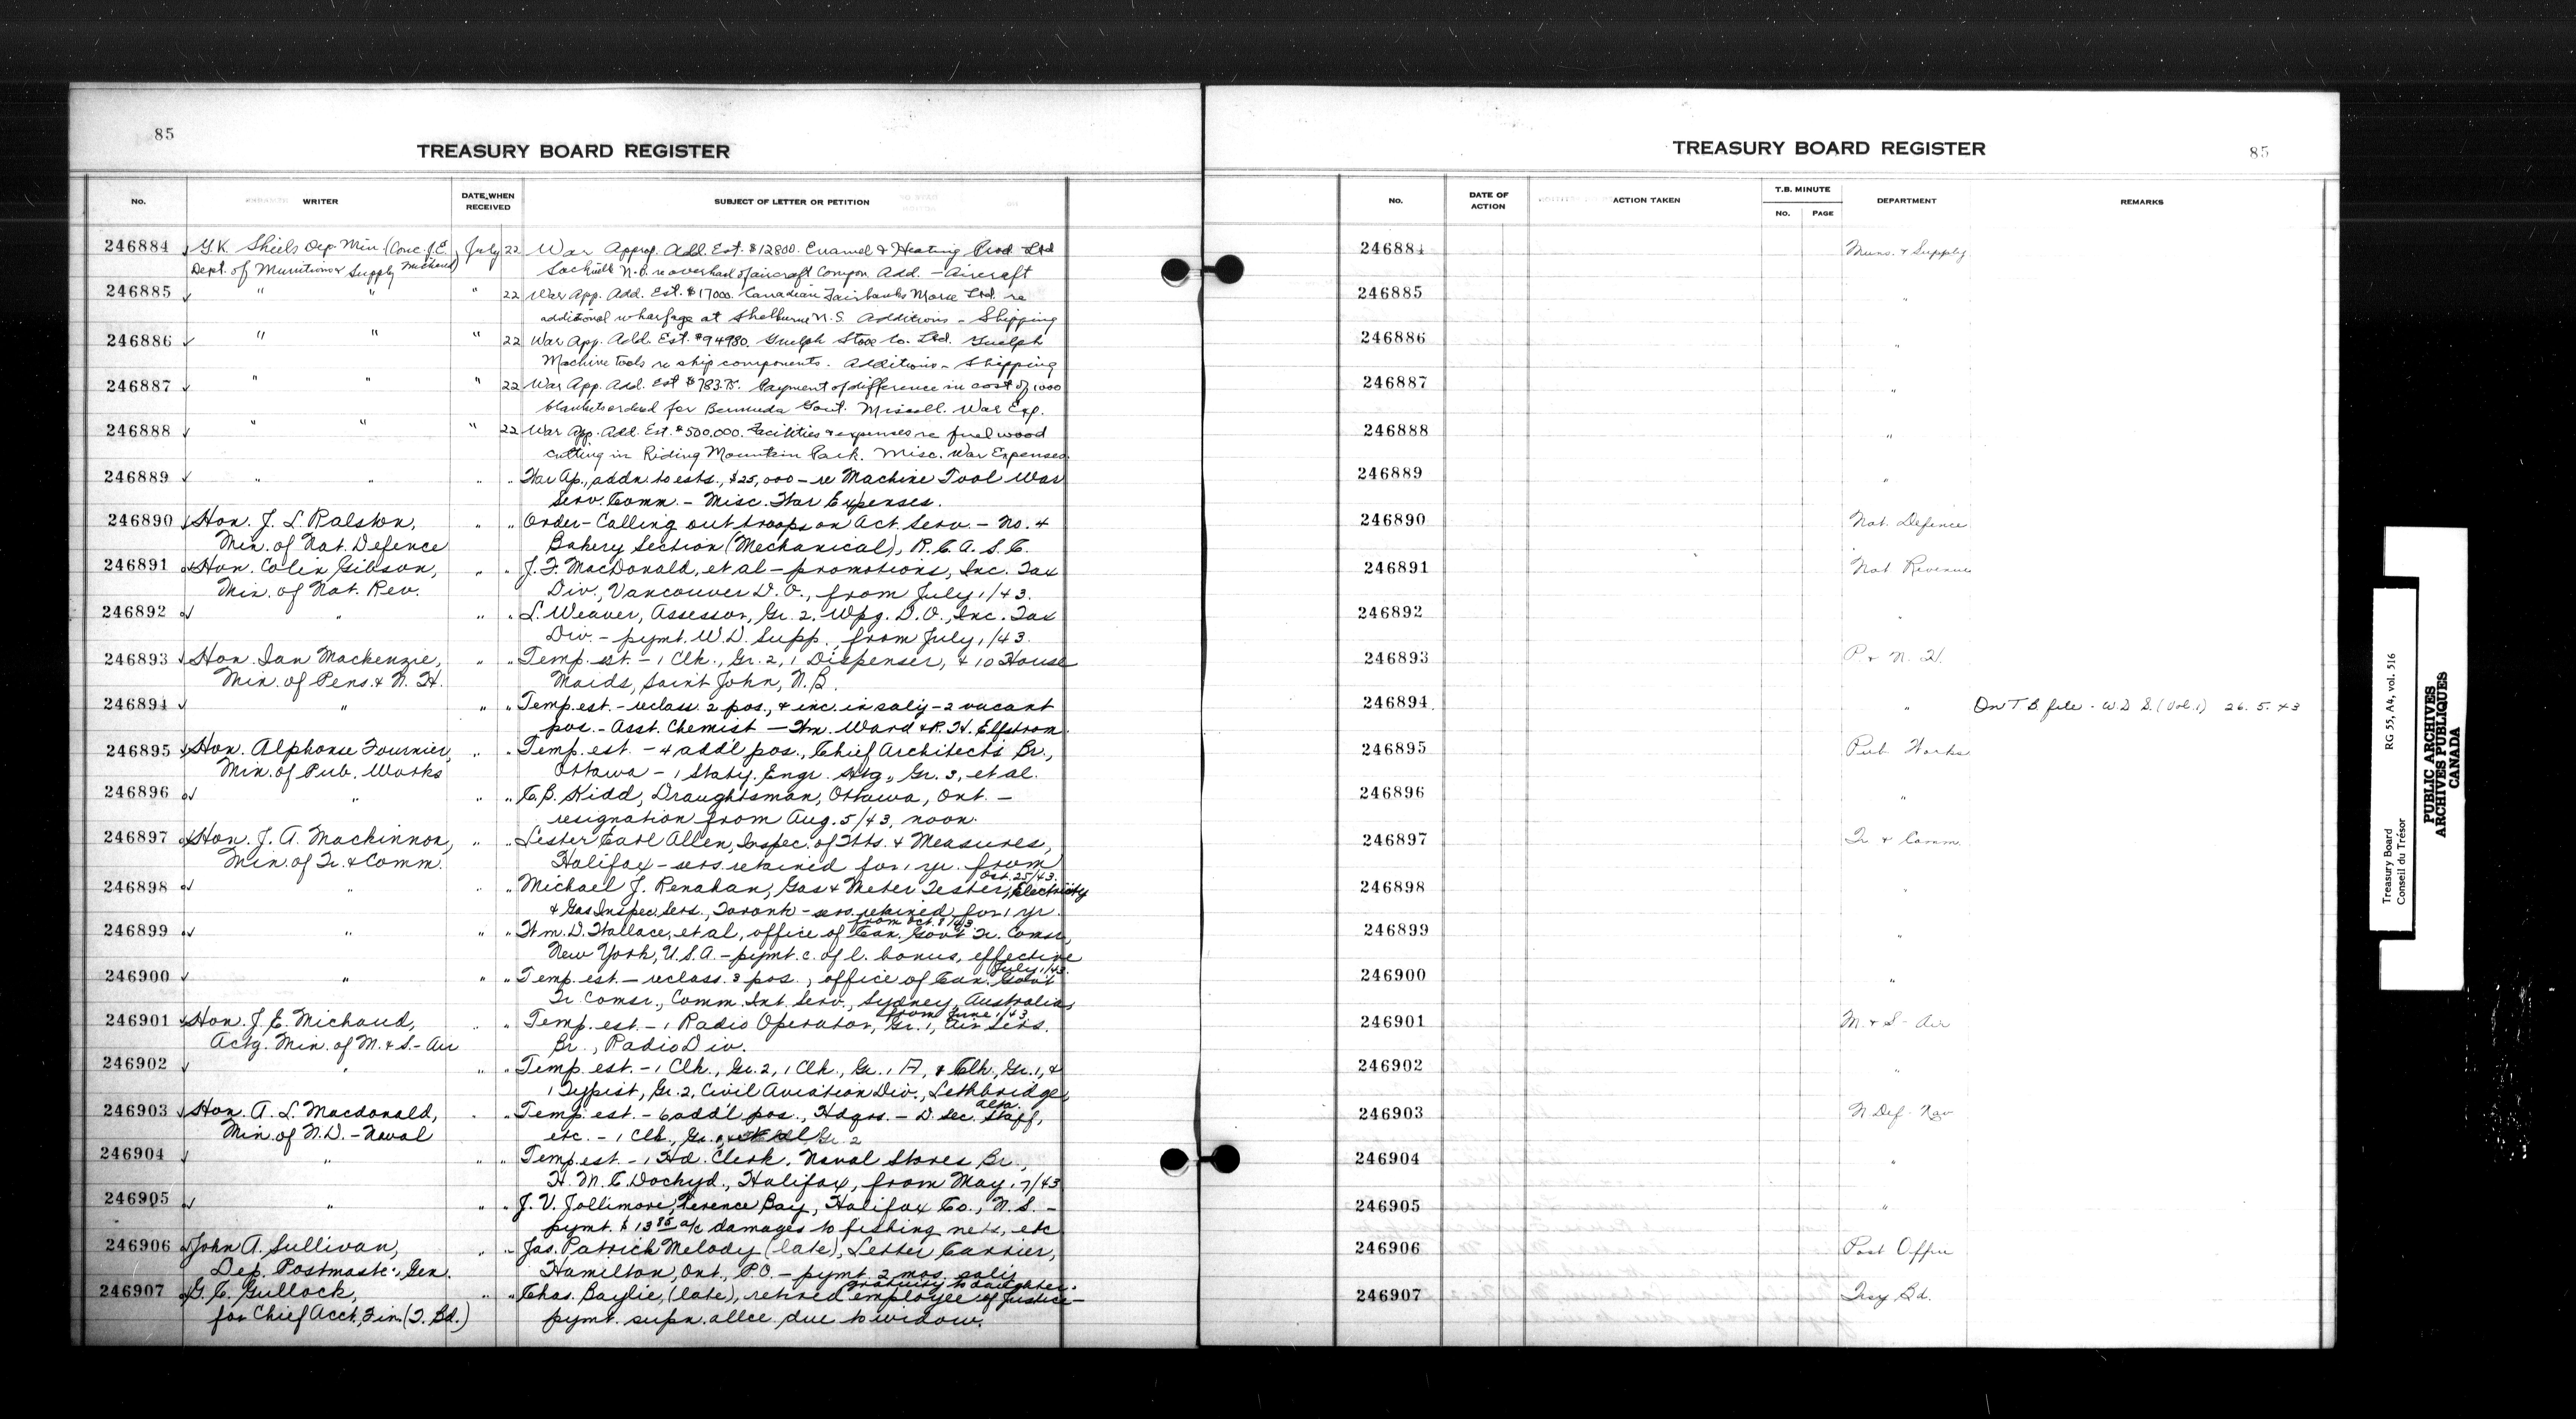 85
TREASURY BOARD REGISTER
No. WRITER DATE WHEN RECEIVED SUBJECT OF LETTER OR PETITION
246884 G.K. Shiels Dep. Min. (Conc. J.E. July 22 War Approp. Add. Est. $12800. Enamel & Heating Prod. Ltd
Dept. of Munitions & Supply Michaud) Sackville N.B. re overhaul of aircraft Compon. Add. - Aircraft
246885 " " " 22 War App. Add. Est. $17000. Canadian Fairbanks Morse Ltd. re
additional wharfage at Shelburne N.S. Additions - Shipping
246886 " " " 22 War App. Add. Est. $94980. Guelph Stove Co. Ltd. Guelph
Machine tools re ship components. Additions - Shipping
246887 " " " 22 War App. Add. Est $783.75. Payment of difference in cost of 1000
blankets ordered for Bermuda Govt. Miscell. War Exp.
246888 " " " 22 War App. Add. Est. $500,000. Facilities & expenses re fuel wood
cutting in Riding Mountain Park. Misc. War Expenses
246889 " " " " War Ap., addn. to ests., $25,000 - re Machine Tool War
Serv. Comm. - Misc. War Expenses.
246890 Hon. J. L. Ralston, " " Order - Calling out troops on Act. Serv. - No. 4
Min. of Nat. Defence Bakery Section (Mechanical), R.C.A.S.C.
246891 Hon. Colin Gibson, " " J. F. MacDonald, et al - promotions, Inc. Tax
Min. of Nat. Rev. Div., Vancouver D.O., from July 1/43.
246892 " " " L. Weaver, Assessor, Gr. 2, Wpg. D.O., Inc. Tax
Div. - pymt. W.D. Supp. from July 1/43.
246893 Hon. Ian Mackenzie, " " Temp. est. - 1 Clk., Gr. 2, 1 Dispenser, & 10 House
Min. of Pens. & N. H. Maids, Saint John, N.B.
246894 " " " Temp. est. - reclass. 2 pos., & inc. in saly - 2 vacant
pos. - Asst. Chemist - Wm. Ward & R. H. Elfstrom
246895 Hon. Alphonse Fournier, " " Temp. est. - 4 add'l pos., Chief Architect's Br.,
Min. of Pub. Works Ottawa - 1 Staty. Engr. Htg., Gr. 3, et al.
246896 " " " C. B. Kidd, Draughtsman, Ottawa, Ont. -
resignation from Aug. 5/43, noon.
246897 Hon. J. A. Mackinnon, " " Lester Earl Allen, Inspec. of Wts. & Measures,
Min. of Tr. & Comm. Halifax - sers. retained for 1 yr. from
Oct. 25/43.
246898 " " " Michael J. Renahan, Gas & Meter Tester, Electricity
& Gas Inspec. Sers., Toronto - sers. retained for 1 yr.
from Oct. 8/43.
246899 " " " Wm. D. Wallace, et al, office of Can. Gov't Tr. Comsr.,
New York, U.S.A. - pymt. c. of l. bonus, effective
July 1/43.
246900 " " " Temp. est. - reclass. 3 pos., office of Can. Gov't
Tr. Comsr., Comm. Int. Serv., Sydney, Australia,
from June 1/43.
246901 Hon. J. E. Michaud, " " Temp. est. - 1 Radio Operator, Gr. 1, Air Sers.
Actg. Min. of M. & S. - Air Br., Radio Div.
246902 " " " Temp. est. - 1 Clk., Gr. 2, 1 Clk., Gr. 1 A, & Clk., Gr. 1, &
1 Typist, Gr. 2, Civil Aviation Div., Lethbridge,
Alta.
246903 Hon. A. L. Macdonald, " " Temp. est. - 6 add'l pos., Hdqrs. - D. Sec. Staff,
Min. of N.D. - Naval etc. - 1 Clk., Gr. 2
246904 " " " Temp. est. - 1 Hd. Clerk, Naval Stores Br.,
H.M.C. Dockyd., Halifax, from May 17/43
246905 " " " J. V. Jollimore, Terence Bay, Halifax Co., N.S. -
pymt. $13.85 a/c damages to fishing nets, etc
246906 John A. Sullivan, " " Jas. Patrick Melody (late), Letter Carrier,
Dep. Postmaster Gen. Hamilton, Ont., P.O. - pymt. 2 mos. saly
gratuity to daughter.
246907 G. C. Gullock, " " Chas. Baylie, (late), retired employee of Justice -
for Chief Acct., Fin. (T. Bd.) pymt. supn. allce due to widow.
TREASURY BOARD REGISTER
85
No. DATE OF ACTION ACTION TAKEN T.B. MINUTE NO. PAGE DEPARTMENT REMARKS
246884 Muns. & Supply
246885 "
246886 "
246887 "
246888 "
246889 "
246890 Nat. Defence
246891 Nat Revenue
246892 "
246893 P & N. H.
246894 " On T B file - W.D S. (Vol. 1) 26. 5. 43
246895 Pub Works
246896 "
246897 Tr & Comm.
246898 "
246899 "
246900 "
246901 M. & S - Air
246902 "
246903 N Def - Nav
246904 "
246905 "
246906 Post Office
246907 Tresy Bd.
Treasury Board RG 55, A4, vol. 516
Conseil du Trésor
PUBLIC ARCHIVES
ARCHIVES PUBLIQUES
CANADA